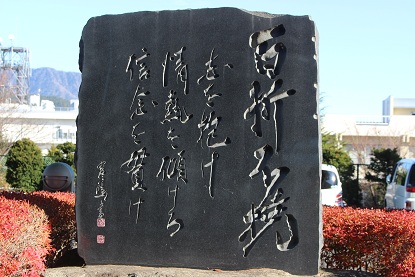 百折不撓
志を抱け
情熱を傾けろ
信念を貫け